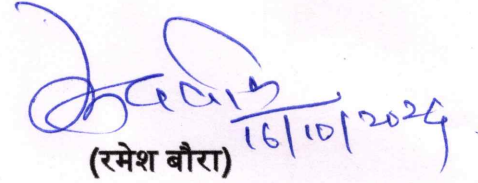 16/10/2024
(रमेश बौरा)